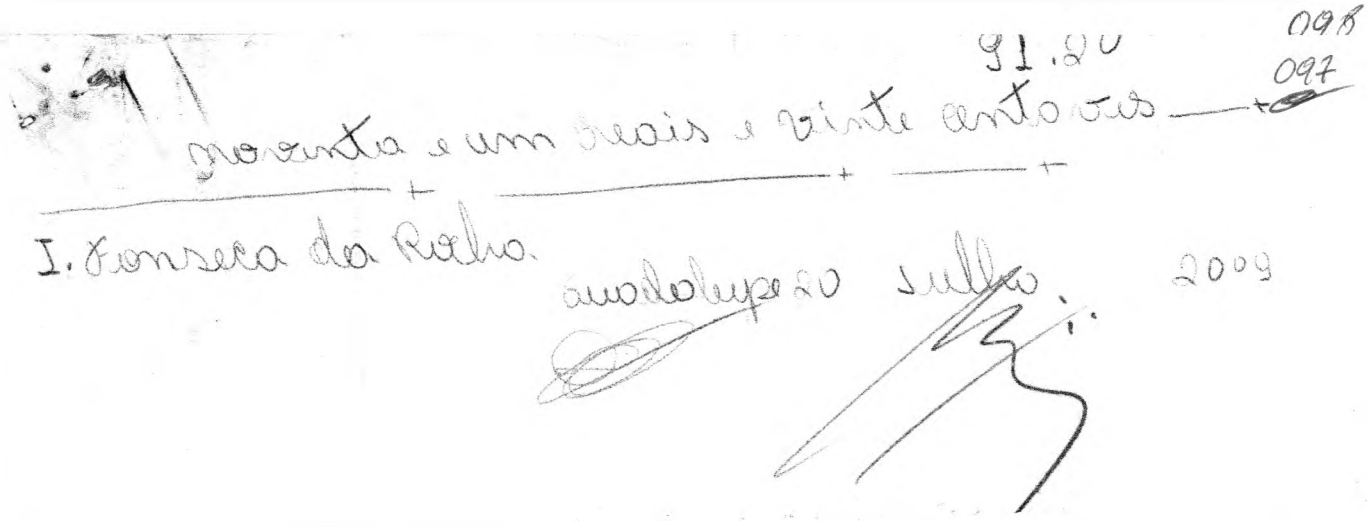 098
91.20
097
noventa e um reais e vinte centavos
I. Fonseca da Rocha
Guadalupe 20 Julho 2009